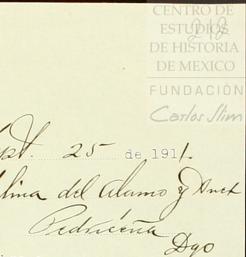 CENTRO DE
ESTUDIOS
DE HISTORIA
DE MEXICO
FUNDACIÓN
Carlos Slim
212
Sept. 25 de 1911.
lina del Alamo y Anex
Pedriceña
Dgo